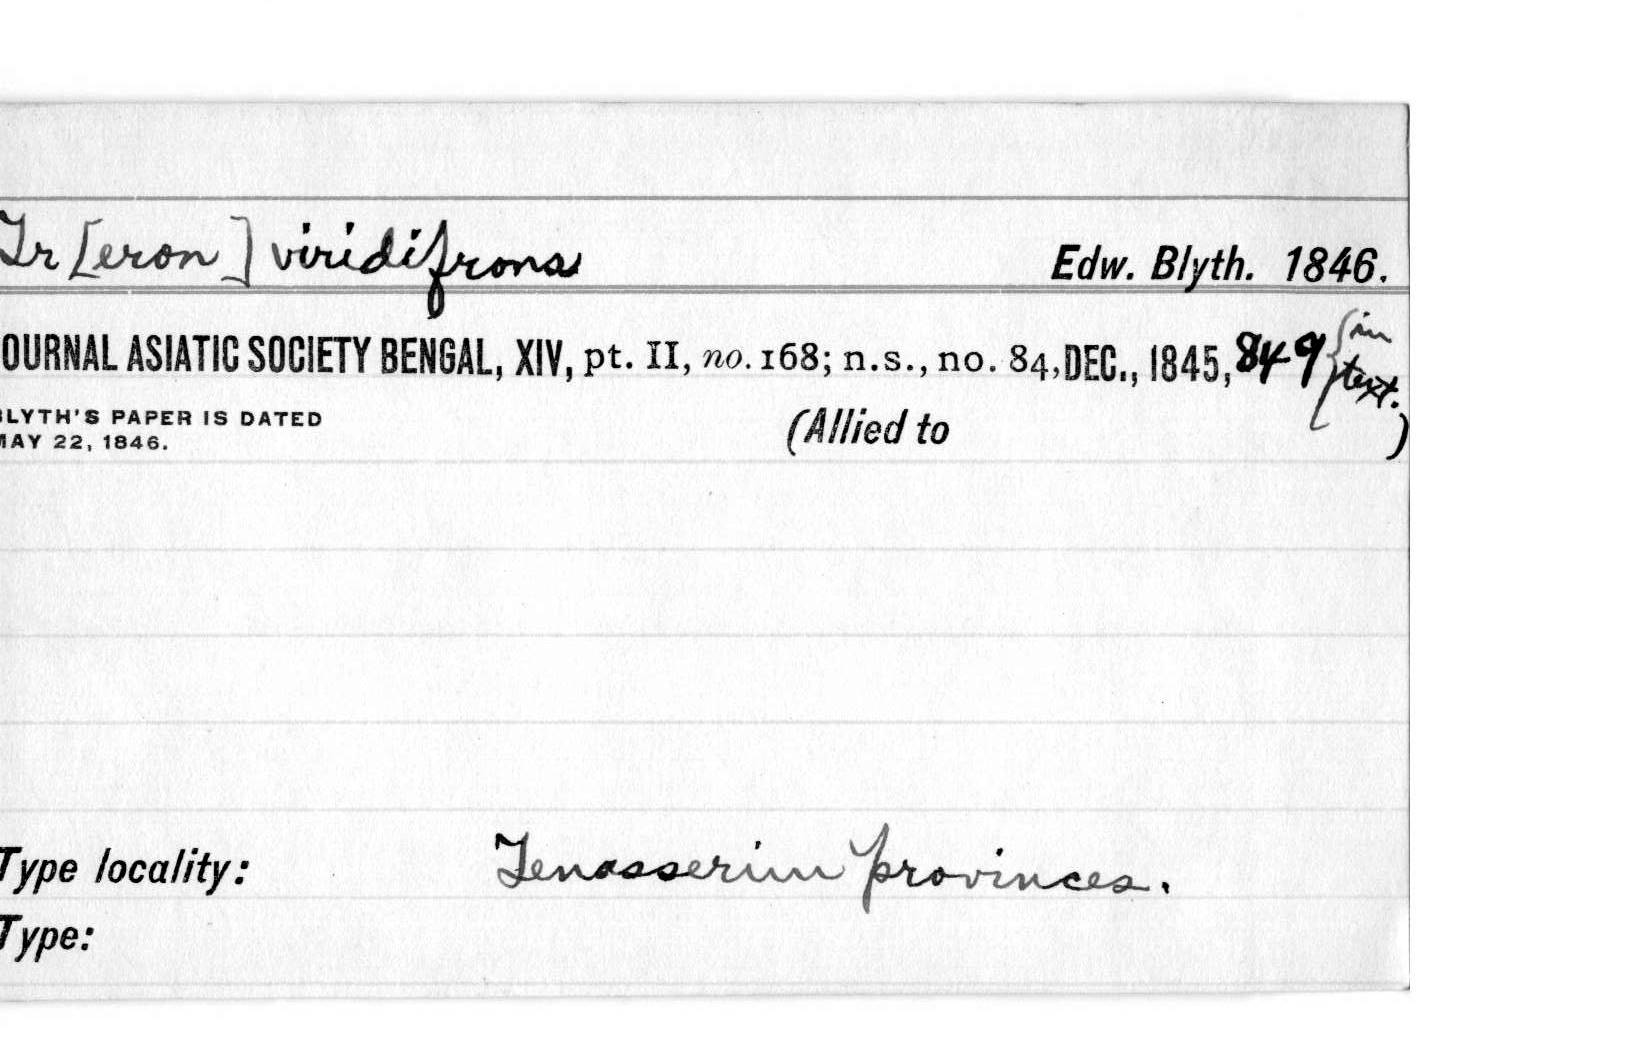 Tr[eron] viridifrons Edw. Blyth. 1846.
OURNAL ASIATIC SOCIETY BENGAL, XIV, pt. II, no. 168; n.s., no. 84, DEC., 1845, 849 {in text.
LYTH'S PAPER IS DATED
MAY 22, 1846.
(Allied to )
Type locality: Tenasserim provinces.
Type: